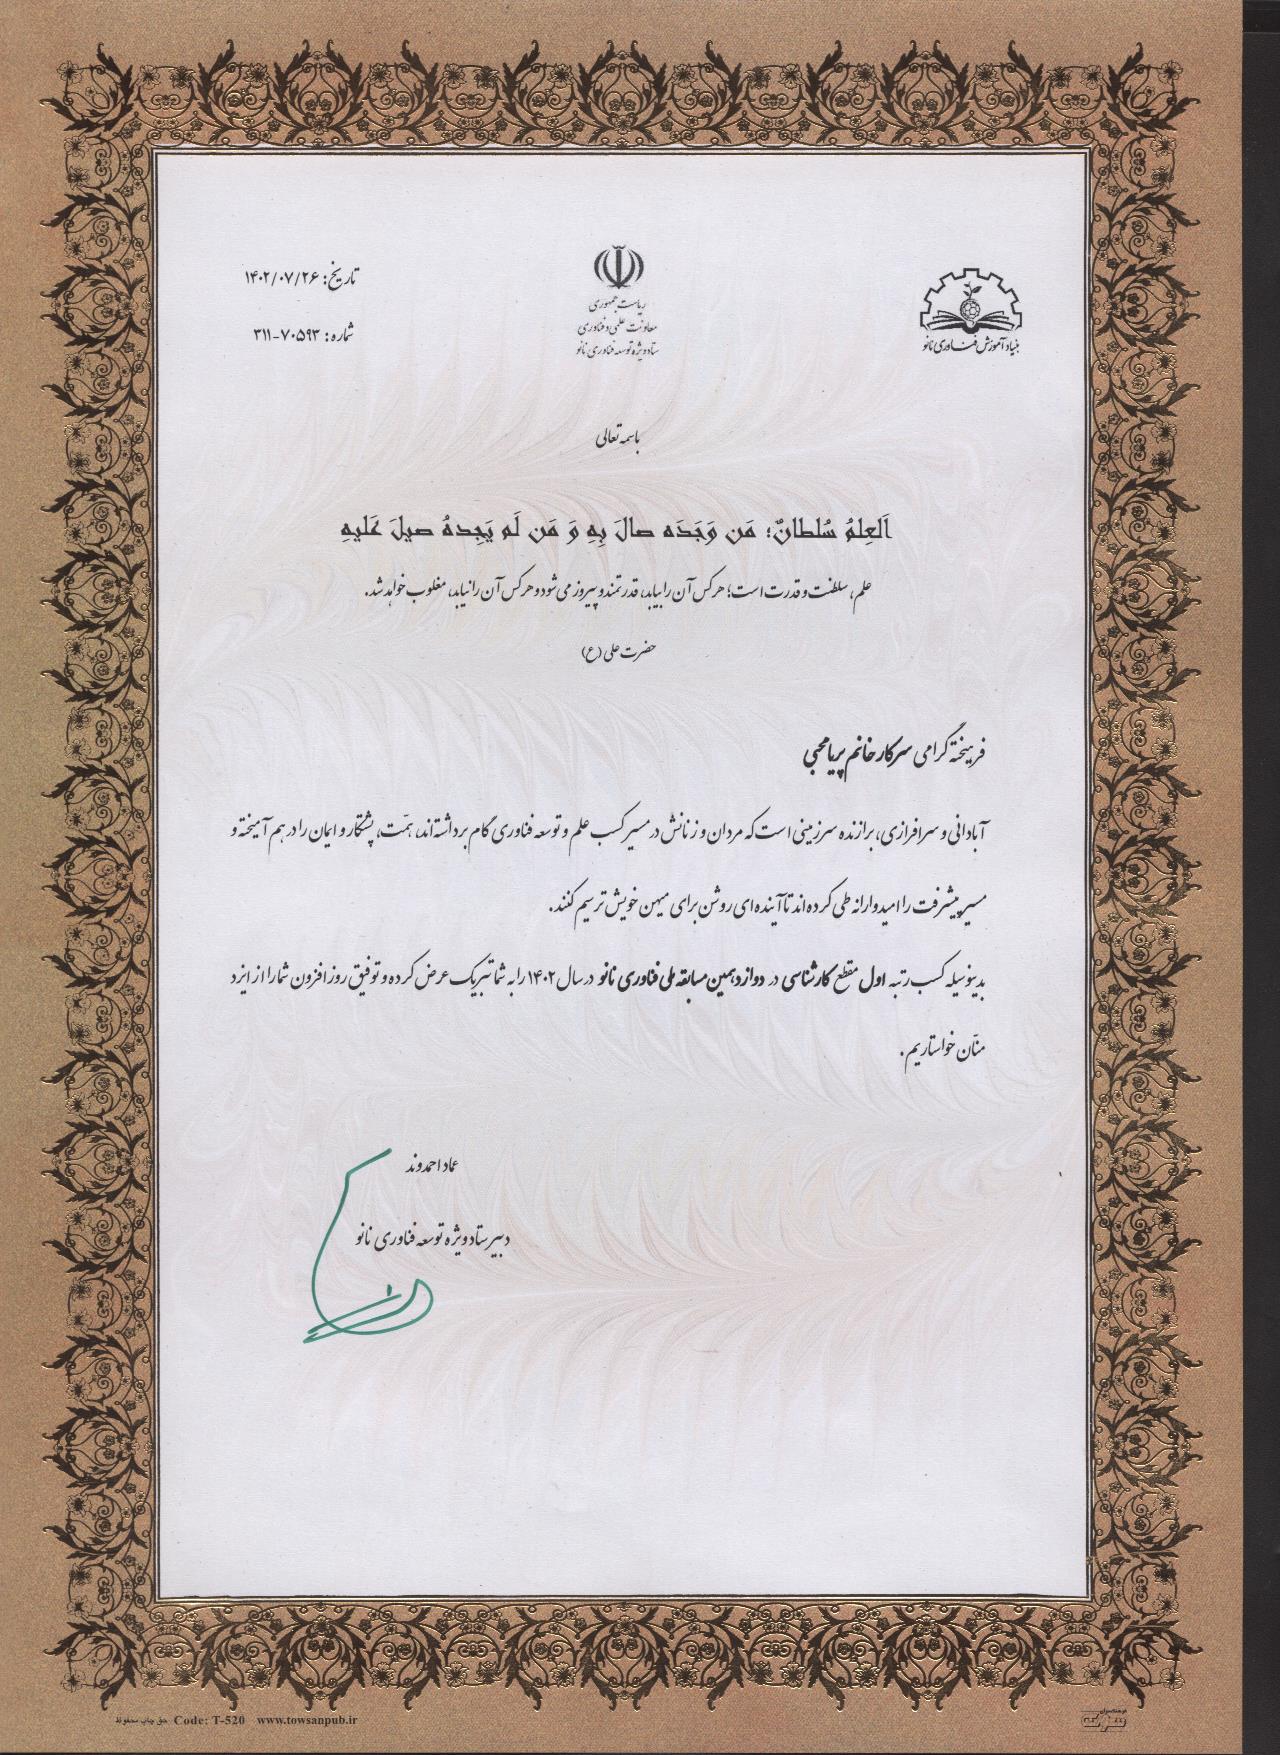 بنیاد آموزش فناوری نانو
ریاست جمهوری
معاونت علمی و فناوری
ستاد ویژه توسعه فناوری نانو
تاریخ: ۱۴۰۲/۰۷/۲۶
شماره: ۳۱۱-۷۰۵۹۳
باسمه تعالی
اَلعِلمُ سُلطانٌ؛ مَن وَجَدَه صالَ بِهِ وَ مَن لَم یَجِدهُ صیلَ عَلَیهِ
علم، سلطنت و قدرت است؛ هرکس آن را بیابد، قدرتمند و پیروز می شود و هرکس آن را نیابد، مغلوب خواهد شد.
حضرت علی (ع)
فرهیخته گرامی سرکار خانم پریا محبی
آبادانی و سرافرازی، برازنده سرزمینی است که مردان و زنانش در مسیر کسب علم و توسعه فناوری گام برداشته‌اند، همّت، پشتکار و ایمان را در هم آمیخته و
مسیر پیشرفت را امیدوارانه طی کرده اند تا آینده ای روشن برای میهن خویش ترسیم کنند.
بدینوسیله کسب رتبه اول مقطع کارشناسی در دوازدهمین مسابقه ملی فناوری نانو در سال ۱۴۰۲ را به شما تبریک عرض کرده و توفیق روز افزون شما را از ایزد
منّان خواستاریم.
عماد احمدوند
دبیر ستاد ویژه توسعه فناوری نانو
حق چاپ محفوظ Code: T-520 www.towsanpub.ir